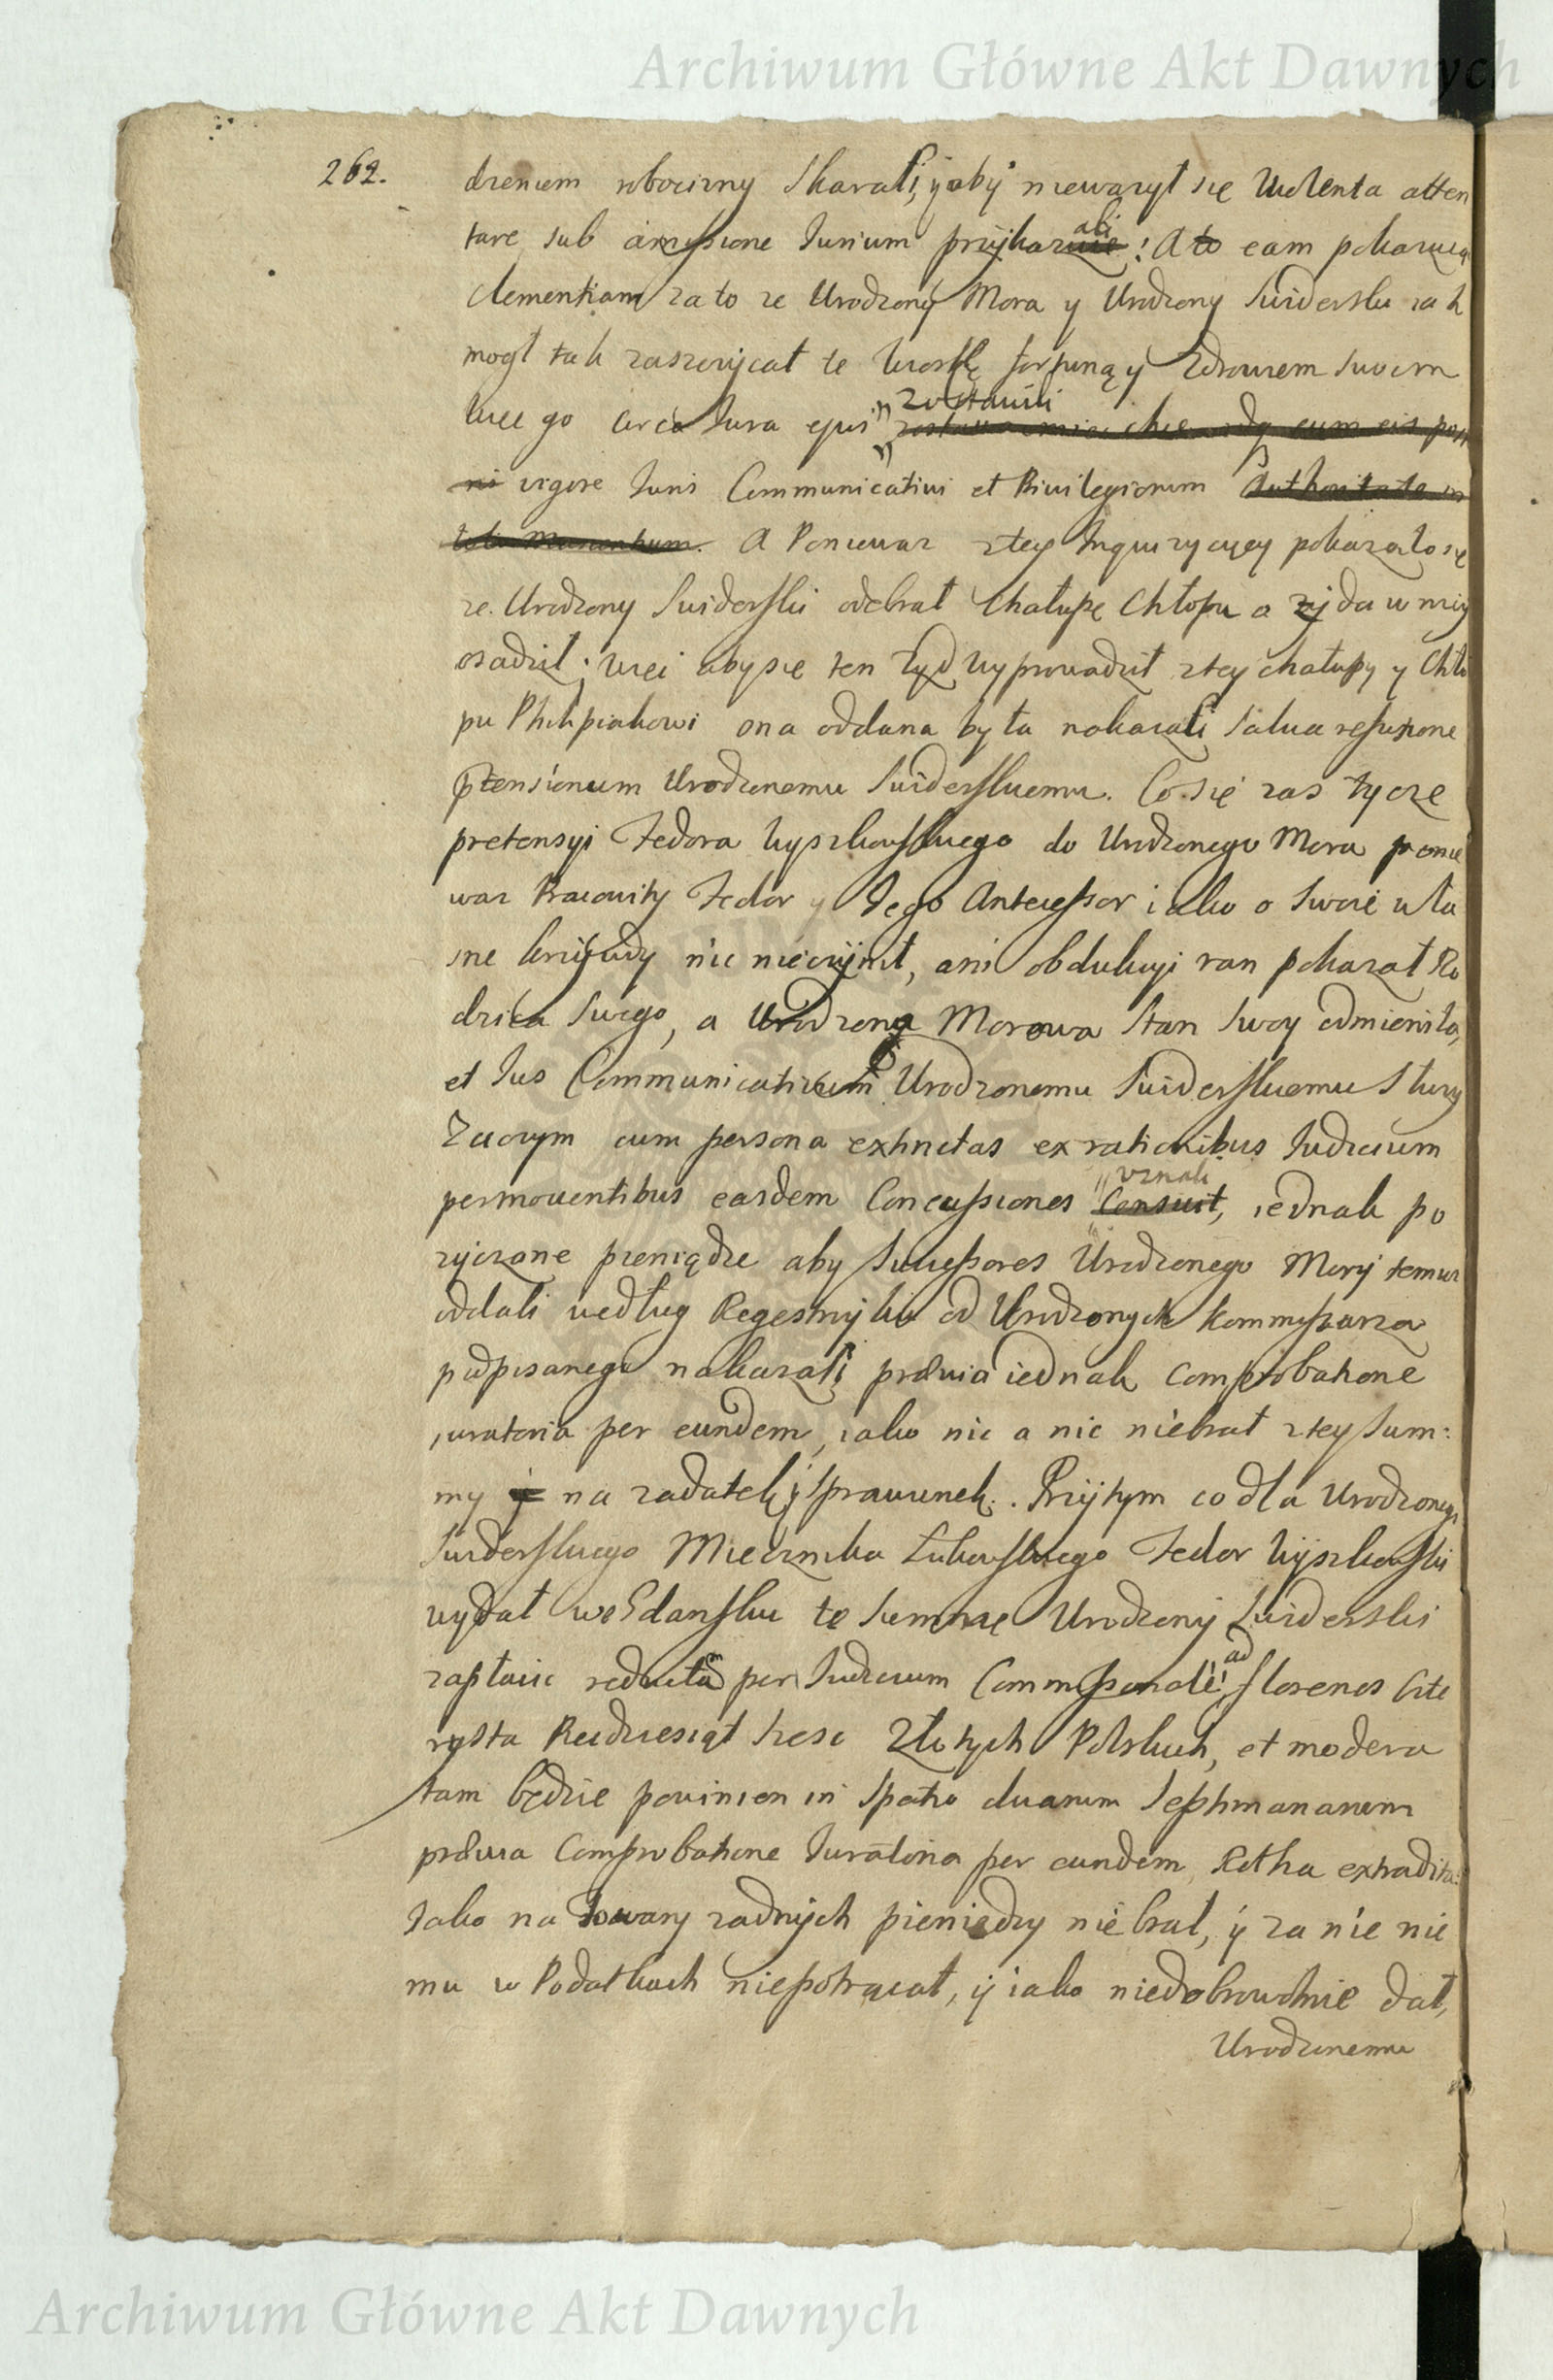 Archiwum Główne Akt Dawnych
262.
dzeniem robocizny skarali, y aby niewazył się Violenta atten
tare sub amissione Jurium przykazali! A to eam pokazuią
clementiam za to ze Urodzony Mora y Urodzony Swiderski iak
mogł tak zaszczycał te Wioskę fortuną y zdrowiem swoim
więc go circa Jura ejus zostawili
vigore Juris Communicativi et Privilegiorum Authoritate
A Poniewaz z tey Inquizycyey pokazało się
ze Urodzony Swiderski odebrał Chałupę Chłopu a zyda w niey
osadził; więc aby się ten Zyd wyprowadził z tey chałupy y Chło
pu Philipiakowi ona oddana była nakazali salua refusione
ptensionum Urodzonemu Swiderskiemu. Co się zas tycze
pretensyi Fedora Wyszkowskiego do Urodzonego Mora ponie
waz Pracowity Fedor y Jego Antecessor iako o swoie wła
sne krzywdy nic nieczynił, ani obdukcyi ran pokazał Ro
dzica swego, a Urodzona Morowa stan swoy odmieniła,
et Jus Communicativum Urodzonemu Swiderskiemu słuzy
Zaczym cum persona extinctas ex rationibus Judicium
permoventibus easdem Concussiones uznali Censuit, iednak po
zyczone pieniądze aby Successores Urodzonego Mory temuz
oddali według Regestrzyku od Urodzonych Kommissarza
podpisanego nakazali, prævia iednak comprobatione
iuratoria per eundem, iako nic a nic niebrał z tey sum:
my na zadatek y sprawunek. Przytym co dla Urodzonego
Swiderskiego Miecznika Łukowskiego Fedor Wyszkowski
wydał w Gdansku te summę Urodzony Swiderski
zapłacic reducta per Judicium Commissoriale ad florenos czte
rysta Piędziesiąt szesc Złotych Polskich, et modera
tam będzie powinien in spatio duarum Septimananem
prævia Comprobatione Juratoria per eundem, Rotha extradita:
Jako na Towary zadnych pieniędzy niebrał, y za nie nic
mu w Podatkach niepotrącał, y iako niedobrowolnie dał,
Urodzonemu
Archiwum Główne Akt Dawnych